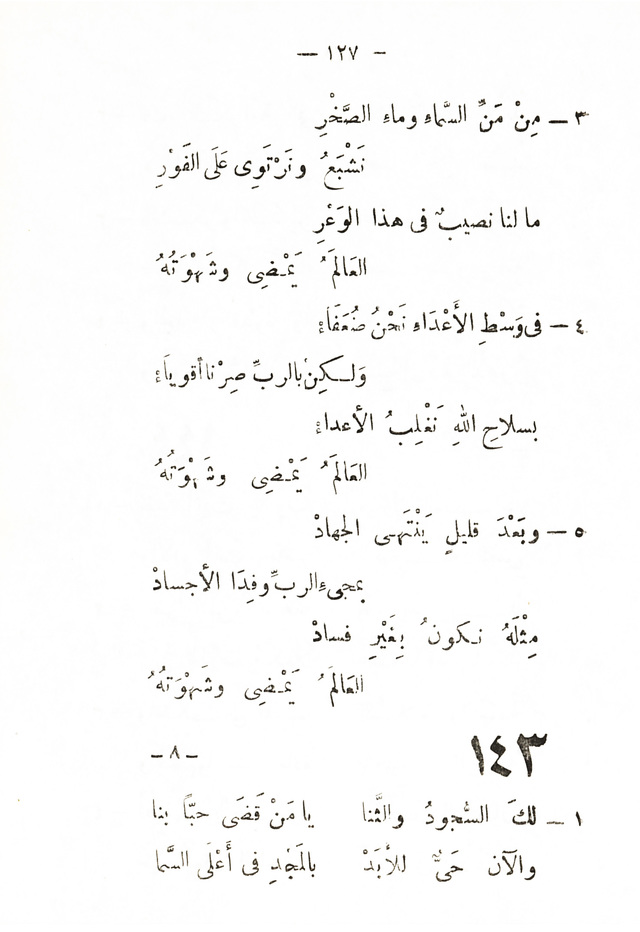 — ١٢٧ —
٣ — مِنْ مَنِّ السَّماءِ وماءِ الصَّخْرِ
نَشْبَعُ ونَرْتَوِى عَلَى الفَوْرِ
ما لنا نصيبٌ فى هذا الوَعْرِ
العَالَمُ يَمْضِى وشَهْوَتُهُ
٤ — فى وَسْطِ الأَعْدَاءِ نَحْنُ ضُعَفَاءْ
وَلكِنْ بالربِّ صِرْنا أقوياءْ
بسلاحِ اللهِ نَغْلِبُ الأعداءْ
العَالَمُ يَمْضِى وشَهْوَتُهُ
٥ — وبَعْدَ قليلٍ يَنْتَهِى الجهادْ
بمجىءِ الربِّ وفِدَا الأجسادْ
مِثْلَهُ نكونُ بِغَيْرِ فسادْ
العَالَمُ يَمْضِى وشَهْوَتُهُ
١٤٣ — ٨ —
١ — لكَ السُّجودُ والثَّنا يا مَنْ قَضَى حبًّا بنا
والآن حَىٌّ للأبَدْ بالمَجْدِ فى أَعْلَى السَّما